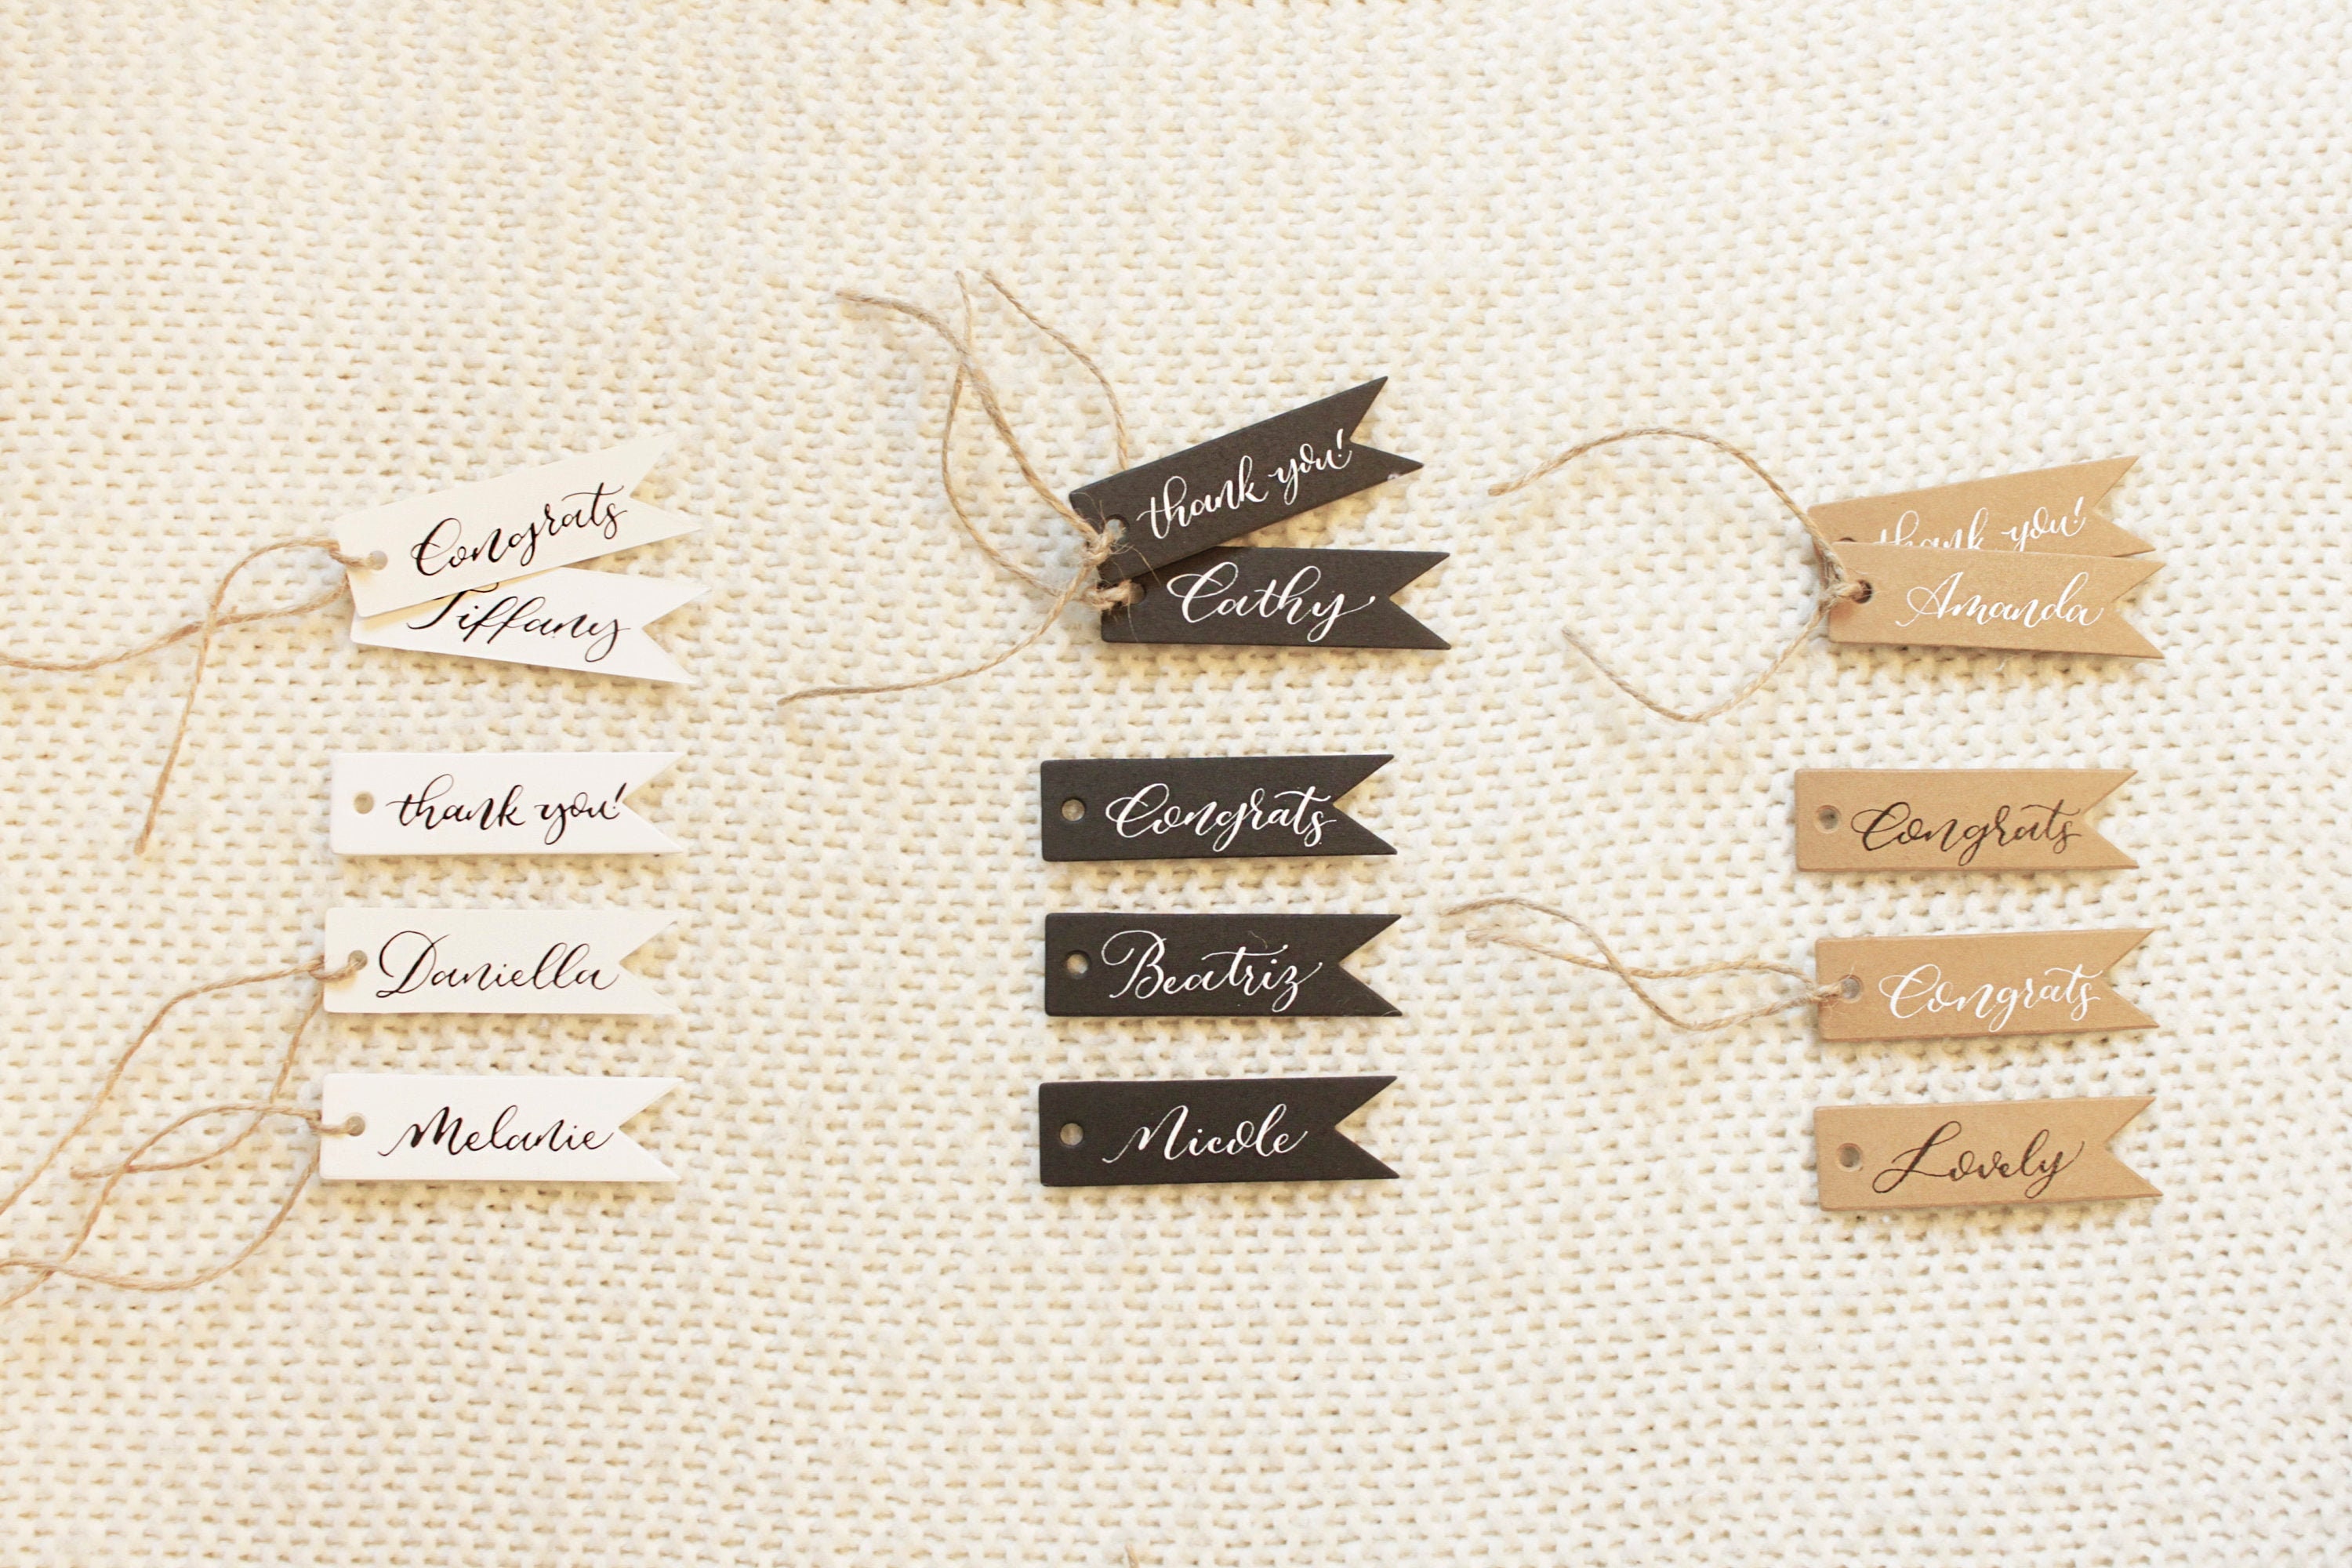 Congrats
Tiffany
thank you!
Daniella
Melanie
thank you!
Cathy
Congrats
Beatriz
Nicole
thank you!
Amanda
Congrats
Congrats
Lovely